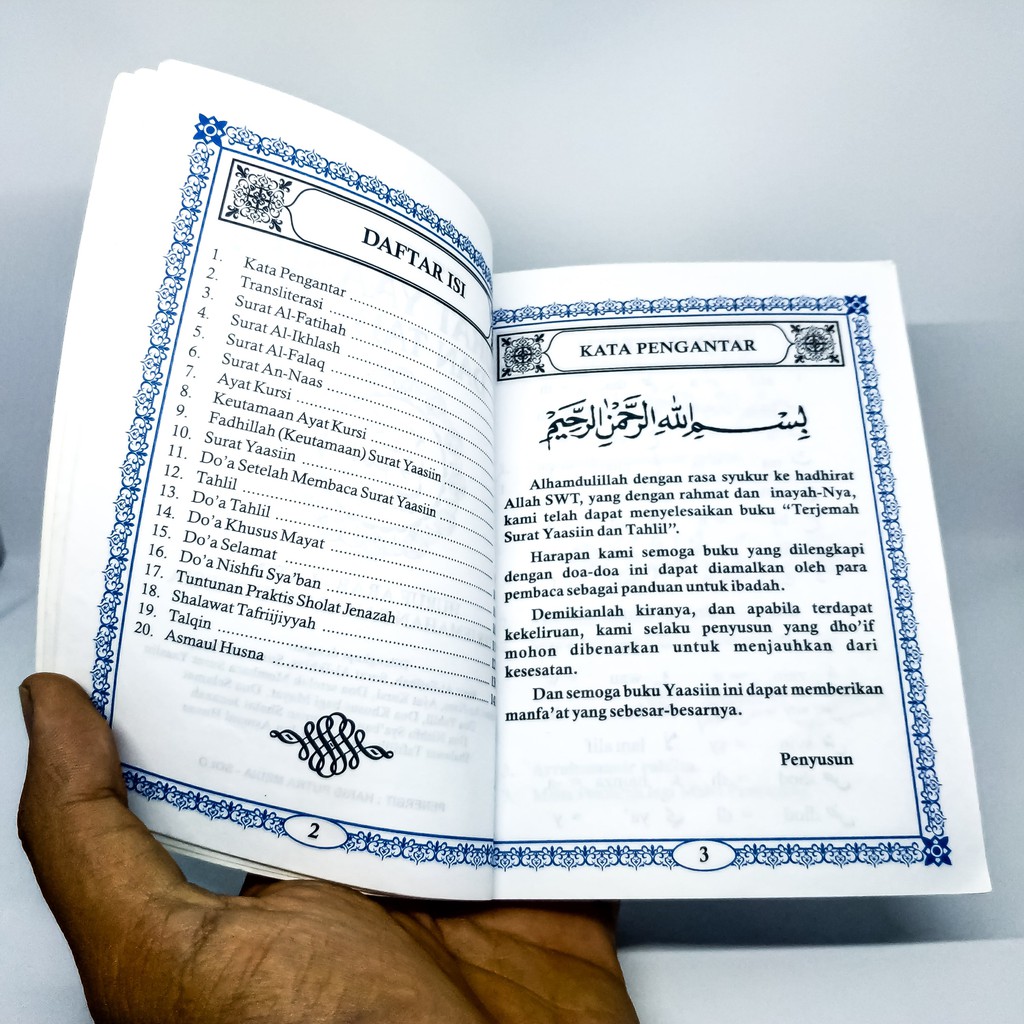 DAFTAR ISI
1. Kata Pengantar
2. Transliterasi
3. Surat Al-Fatihah
4. Surat Al-Ikhlash
5. Surat Al-Falaq
6. Surat An-Naas
7. Ayat Kursi
8. Keutamaan Ayat Kursi
9. Fadhillah (Keutamaan) Surat Yaasiin
10. Surat Yaasiin
11. Do'a Setelah Membaca Surat Yaasiin
12. Tahlil
13. Do'a Tahlil
14. Do'a Khusus Mayat
15. Do'a Selamat
16. Do'a Nishfu Sya'ban
17. Tuntunan Praktis Sholat Jenazah
18. Shalawat Tafriijiyyah
19. Talqin
20. Asmaul Husna
2
KATA PENGANTAR
بِسْمِ اللهِ الرَّحْمٰنِ الرَّحِيْمِ
Alhamdulillah dengan rasa syukur ke hadhirat
Allah SWT, yang dengan rahmat dan inayah-Nya,
kami telah dapat menyelesaikan buku “Terjemah
Surat Yaasiin dan Tahlil”.
Harapan kami semoga buku yang dilengkapi
dengan doa-doa ini dapat diamalkan oleh para
pembaca sebagai panduan untuk ibadah.
Demikianlah kiranya, dan apabila terdapat
kekeliruan, kami selaku penyusun yang dho'if
mohon dibenarkan untuk menjauhkan dari
kesesatan.
Dan semoga buku Yaasiin ini dapat memberikan
manfa'at yang sebesar-besarnya.
Penyusun
3